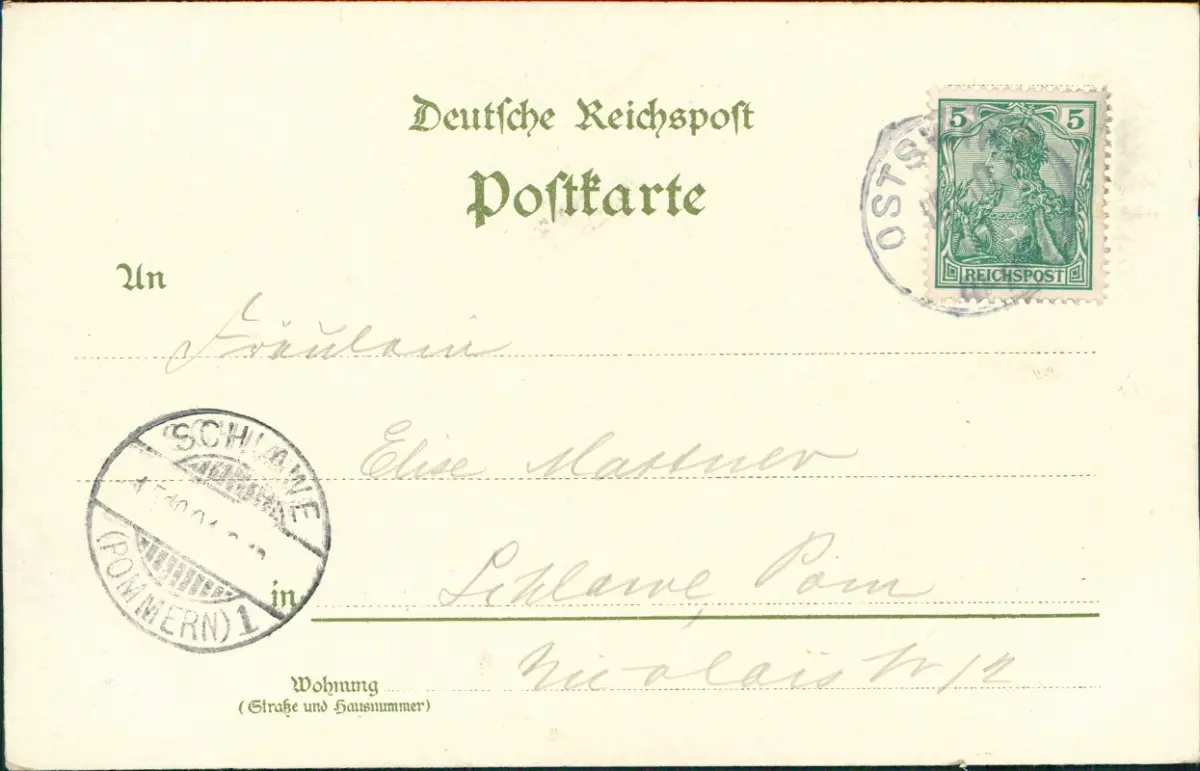 Deutsche Reichspost
Postkarte
5 5
REICHSPOST
An
Fräulein
Elise Mattner
SCHLAWE
(POMMERN) 1
in Schlawe, Pom
Nicolaistr 12
Wohnung
(Straße und Hausnummer)